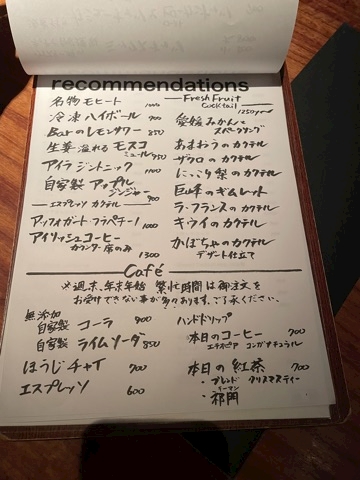 recommendations
名物 モヒート 1000
冷凍ハイボール 900
Barのレモンサワー 850
生姜溢れるモスコ
ミュール 950
アイラ ジントニック 1100
自家製 アップル
ジンジャー 900
エスプレッソ カクテル
アッフォガート・フラペチーノ
アイリッシュコーヒー 1000
カウンター席のみ 1300
Fresh Fruit
Cocktail
1250yen
愛媛みかんと
スパークリング
あまおうのカクテル
ザクロのカクテル
にっこり梨のカクテル
巨峰のギムレット
ラ・フランスのカクテル
キウイのカクテル
かぼちゃのカクテル
デザート仕立て
Café
※週末、年末年始 繁忙時間は御注文を
お受けできない事が多々あります。ご了承ください。
無添加
自家製 コーラ 900
自家製 ライムソーダ 850
ほうじチャイ 700
エスプレッソ 600
ハンドドリップ
本日のコーヒー 700
エチオピア コンガナチュラル
本日の紅茶 700
・ブレンド クリスマスティー
キーマン
・祁門